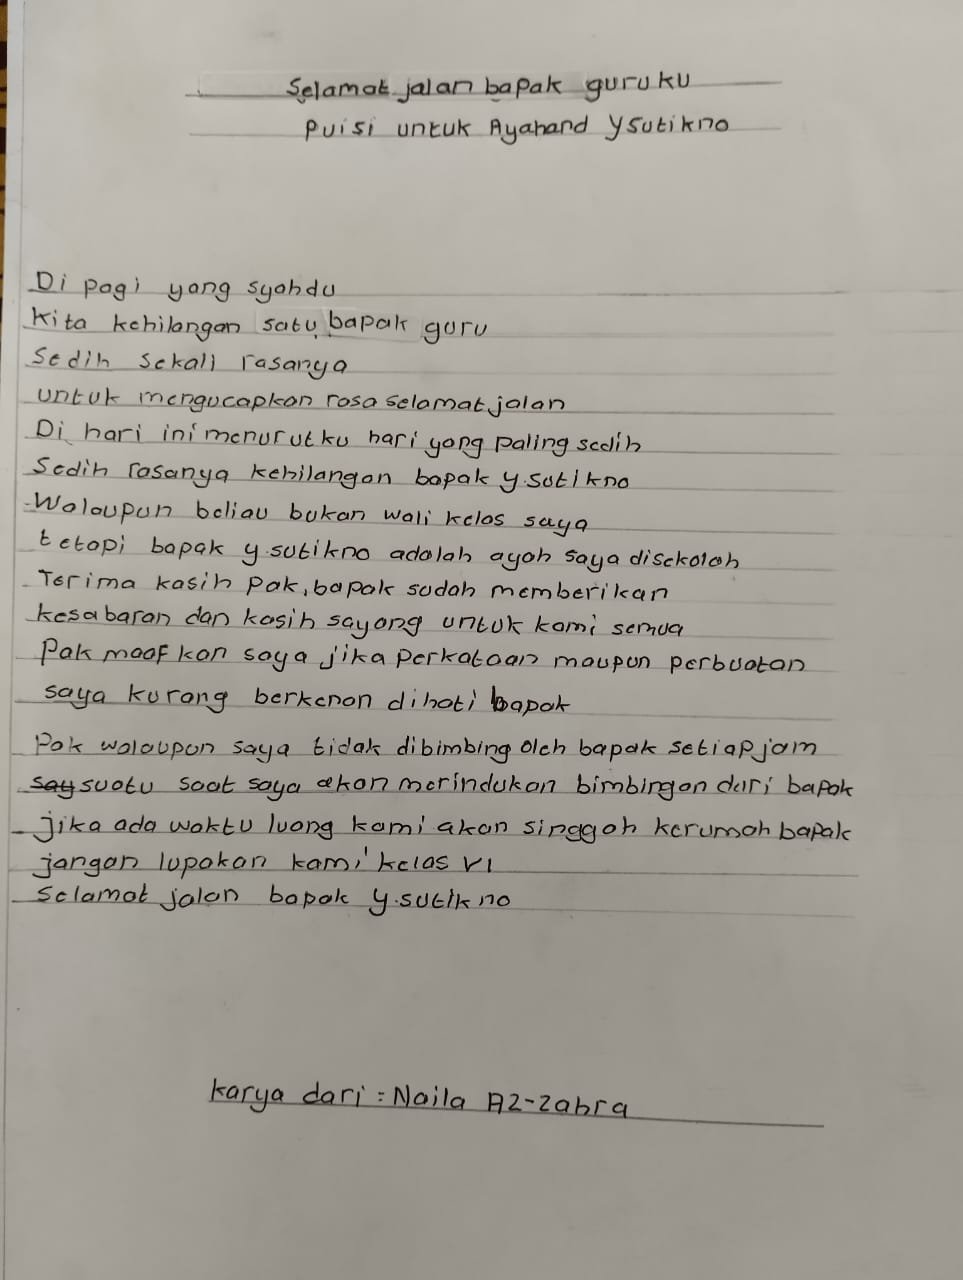 Selamat jalan bapak guruku
Puisi untuk Ayahand Y Sutikno
Di pagi yang syahdu
Kita kehilangan satu bapak guru
Sedih sekali rasanya
untuk mengucapkan rasa selamat jalan
Di hari ini menurutku hari yang paling sedih
Sedih rasanya kehilangan bapak y.sutikno
Walaupun beliau bukan wali kelas saya
tetapi bapak y.sutikno adalah ayah saya disekolah
Terima kasih pak, bapak sudah memberikan
kesabaran dan kasih sayang untuk kami semua
Pak maafkan saya jika perkataan maupun perbuatan
saya kurang berkenan dihati bapak
Pak walaupun saya tidak dibimbing oleh bapak setiap jam
say suatu saat saya akan merindukan bimbingan dari bapak
jika ada waktu luang kami akan singgah kerumah bapak
jangan lupakan kami kelas VI
Selamat jalan bapak y.sutikno
Karya dari : Naila AZ-Zahra